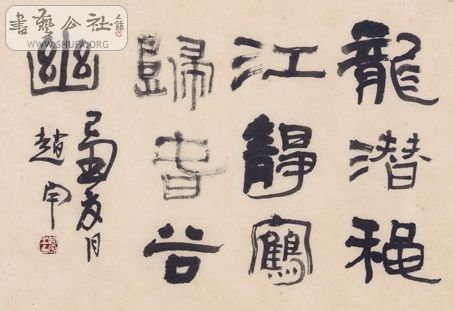 書藝公社
WWW.SHUFA.ORG
龍潛穐
江靜鶴
歸旾谷
幽
月
趙